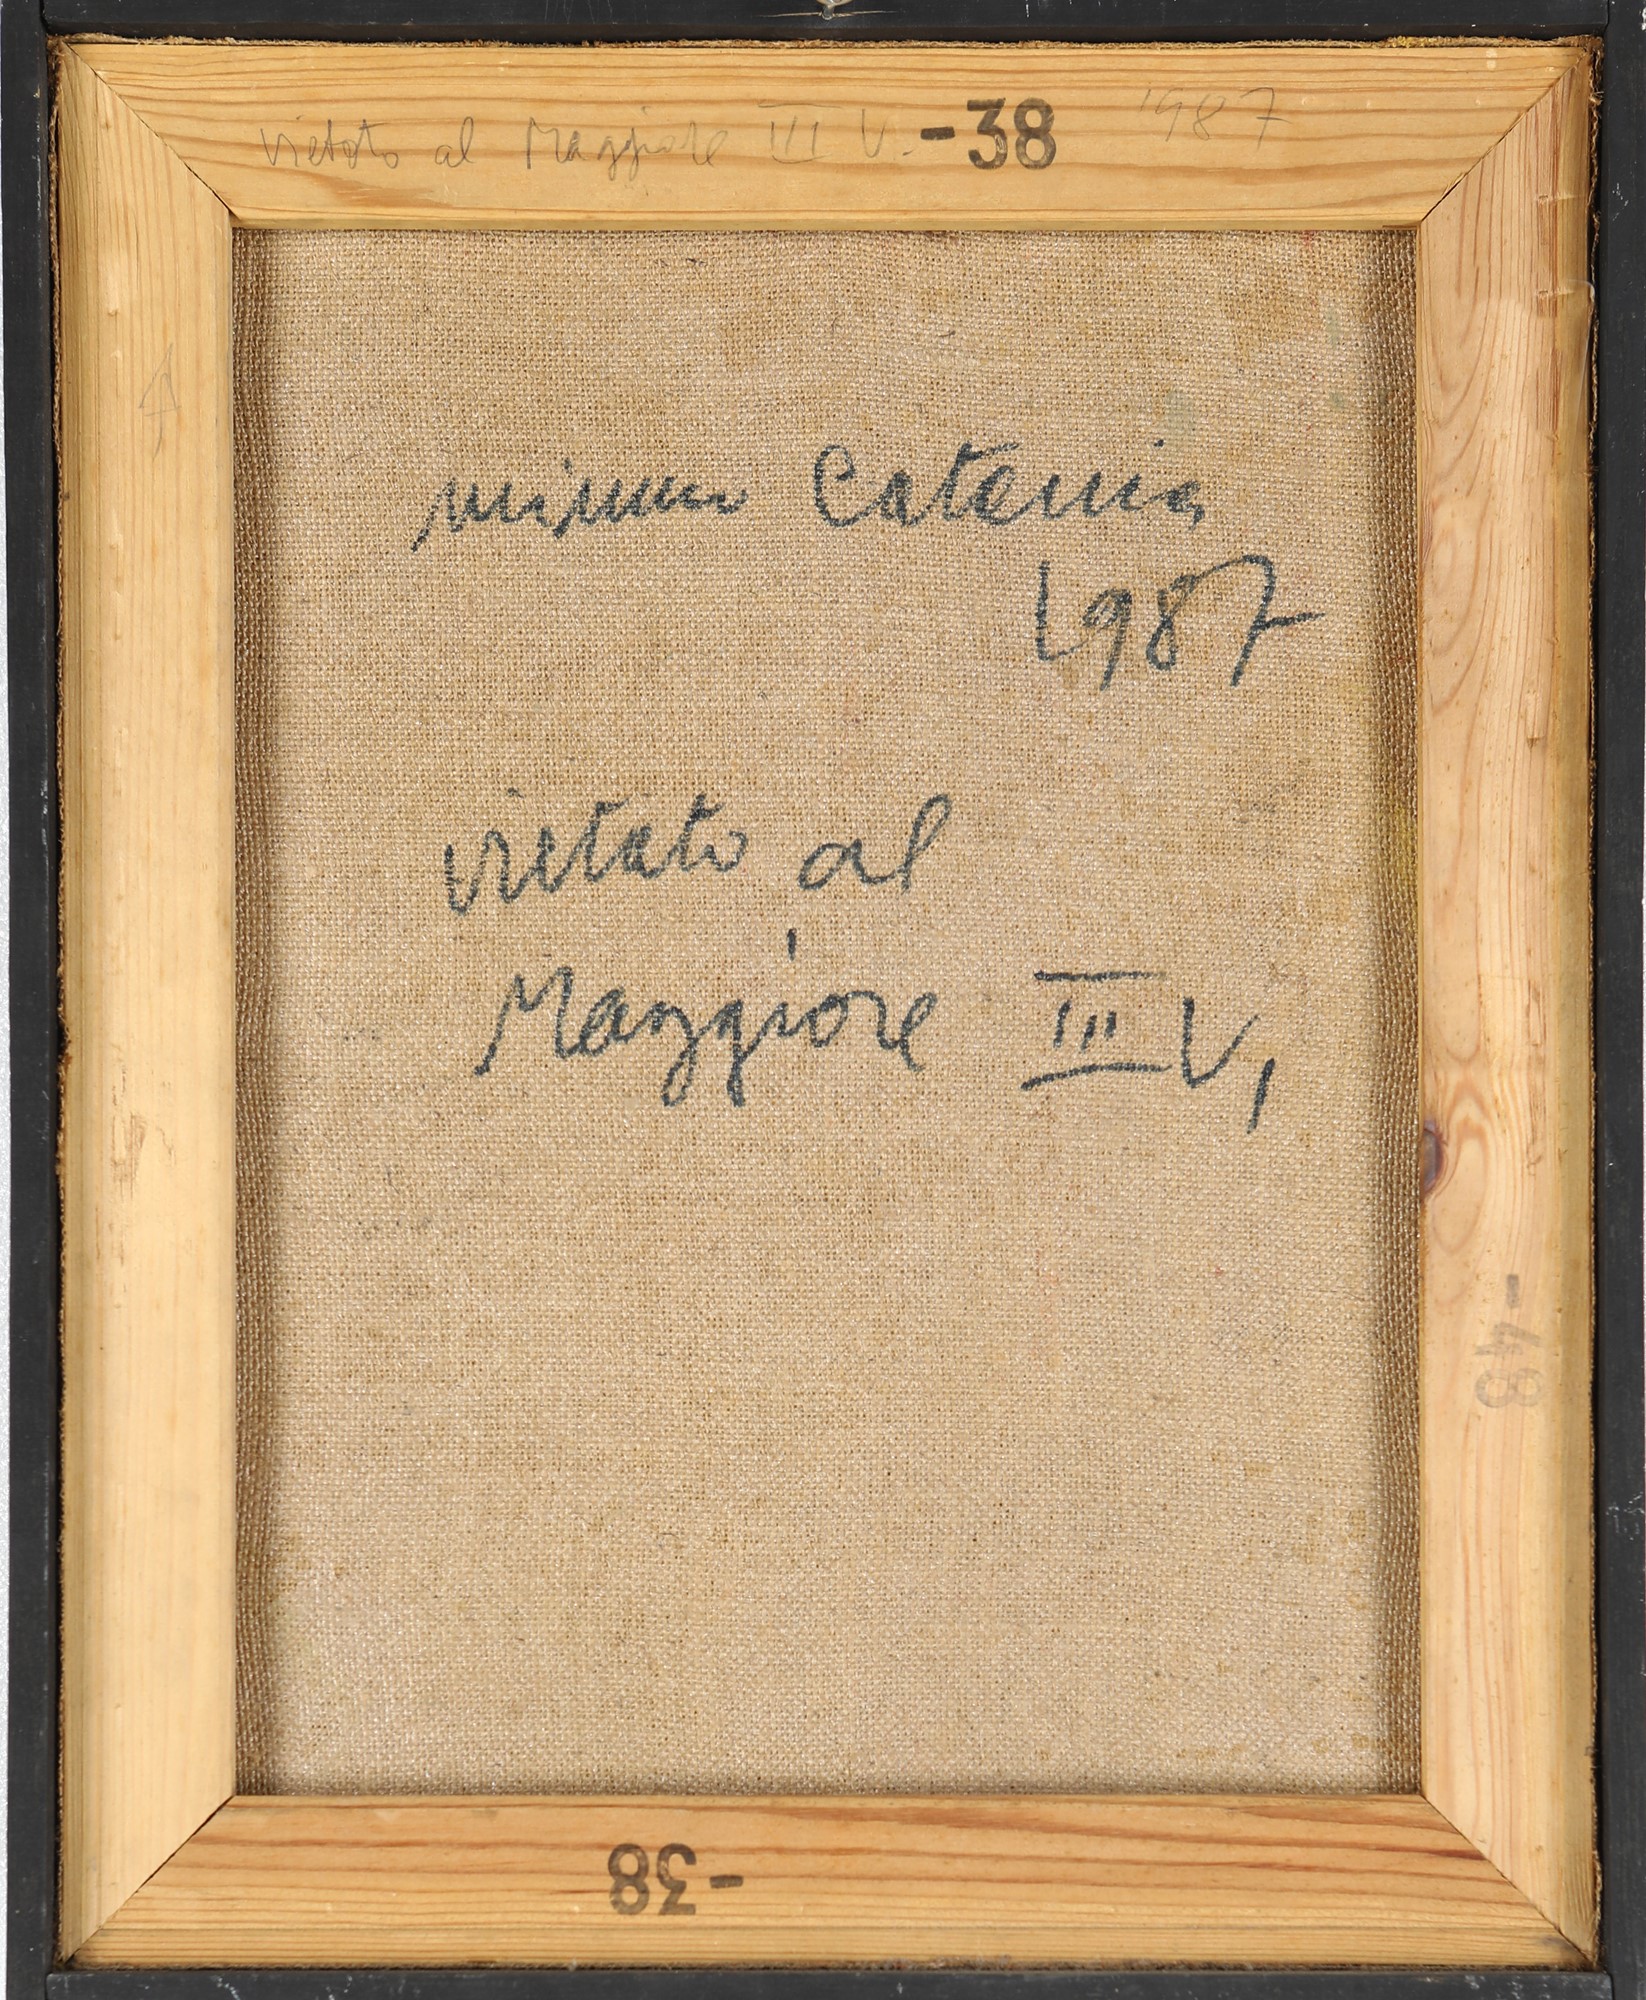 vietato al Maggiore III V. -38 1987
mimmo Catania
1987
vietato al
Maggiore III V,
-48
-38